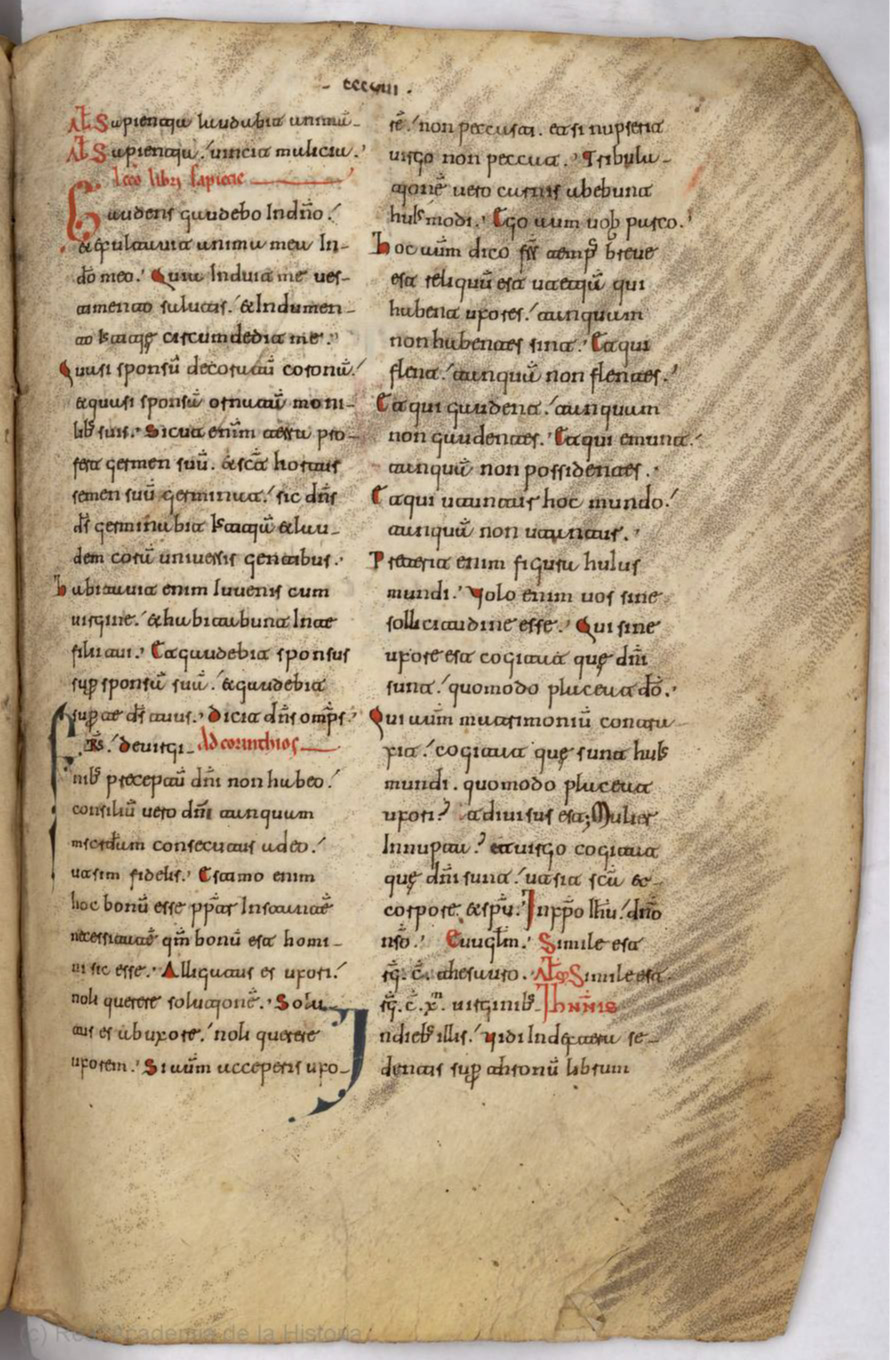 - cccxiii .
Alt Sapientia laudabit animā-
Alt Sapientia. uincit malitia.
lc̄o libri sapiēcie
Gaudens gaudebo In dn̄o.
& exultauit anima mea In-
dō meo. Quia Induit me ues-
timento salutis. & Indumen-
to iustitię circumdedit me.
Quasi sponsū decoratū coronā.
& quasi sponsā ornatā moni-
lib; suis. Sicut enim terra pro-
fert germen suū. & sc̄t hortus
semen suū germinat. sic dn̄s
ds̄ germinabit iustitiā & lau-
dem corā uniuersis gentibus.
habitauit enim Iuuenis cum
uirgine. & habitabunt In te
filii tui. Et gaudebit sponsus
sup sponsā suā. & gaudebit
sup te ds̄ tuus. Dicit dn̄s omp̄s
Frs̄. de uirgi- Ad corinthios
nib; preceptū dn̄i non habeo.
consiliū uero dn̄i tanquam
misc̄dam consecutus a deo.
ut sim fidelis. Estimo enim
hoc bonū esse pp̄ter Instante
necessitate qm̄ bonū est homi-
ni sic esse. Alligatus es uxori.
noli querere solutionē. Solu-
tus es ab uxore. noli querere
uxorem. Si aūm acceperis uxo-
rē. non peccasti. et si nupserit
uirgo non peccat. Tribula-
tionē uero carnis abebunt
huius modi. Ego aūm uob̄ parco.
hoc aūm dico frs̄ temp̄ breue
est reliquū est ut & qui
habent uxores. tanquam
non habentes sint. Et qui
flent. tanquā non flentes.
Et qui gaudent. tanquam
non gaudentes. Et qui emunt.
tanquā non possidentes.
Et qui utuntur hoc mundo.
tanquā non utuntur.
Preterit enim figura huius
mundi. Volo enim uos sine
sollicitudine esse. Qui sine
uxore est cogitat quę dn̄i
sunt. quomodo placeat dō.
Qui aūm matrimoniū contra-
xit. cogitat quę sunt huius
mundi. quomodo placeat
uxori. et diuisus est; Mulier
Innupta. et uirgo cogitat
quę dn̄i sunt. ut sit scā &
corpore. & spū. In xp̄o Ihū. dn̄o
nso. Euuglm̄. Simile est
rg̅. c̄. thesauro. Alt Simile est
rg̅. c̄. x̄m. uirginib; Iohn̄nis
In dieb; illis. Uidi In dextera se-
dentis sup thronū librum